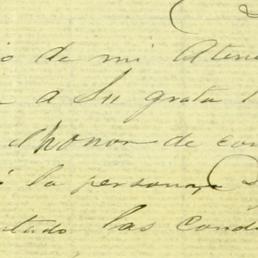 de mi Aten
a Su grata
honor de con
la persona,
tado las cond